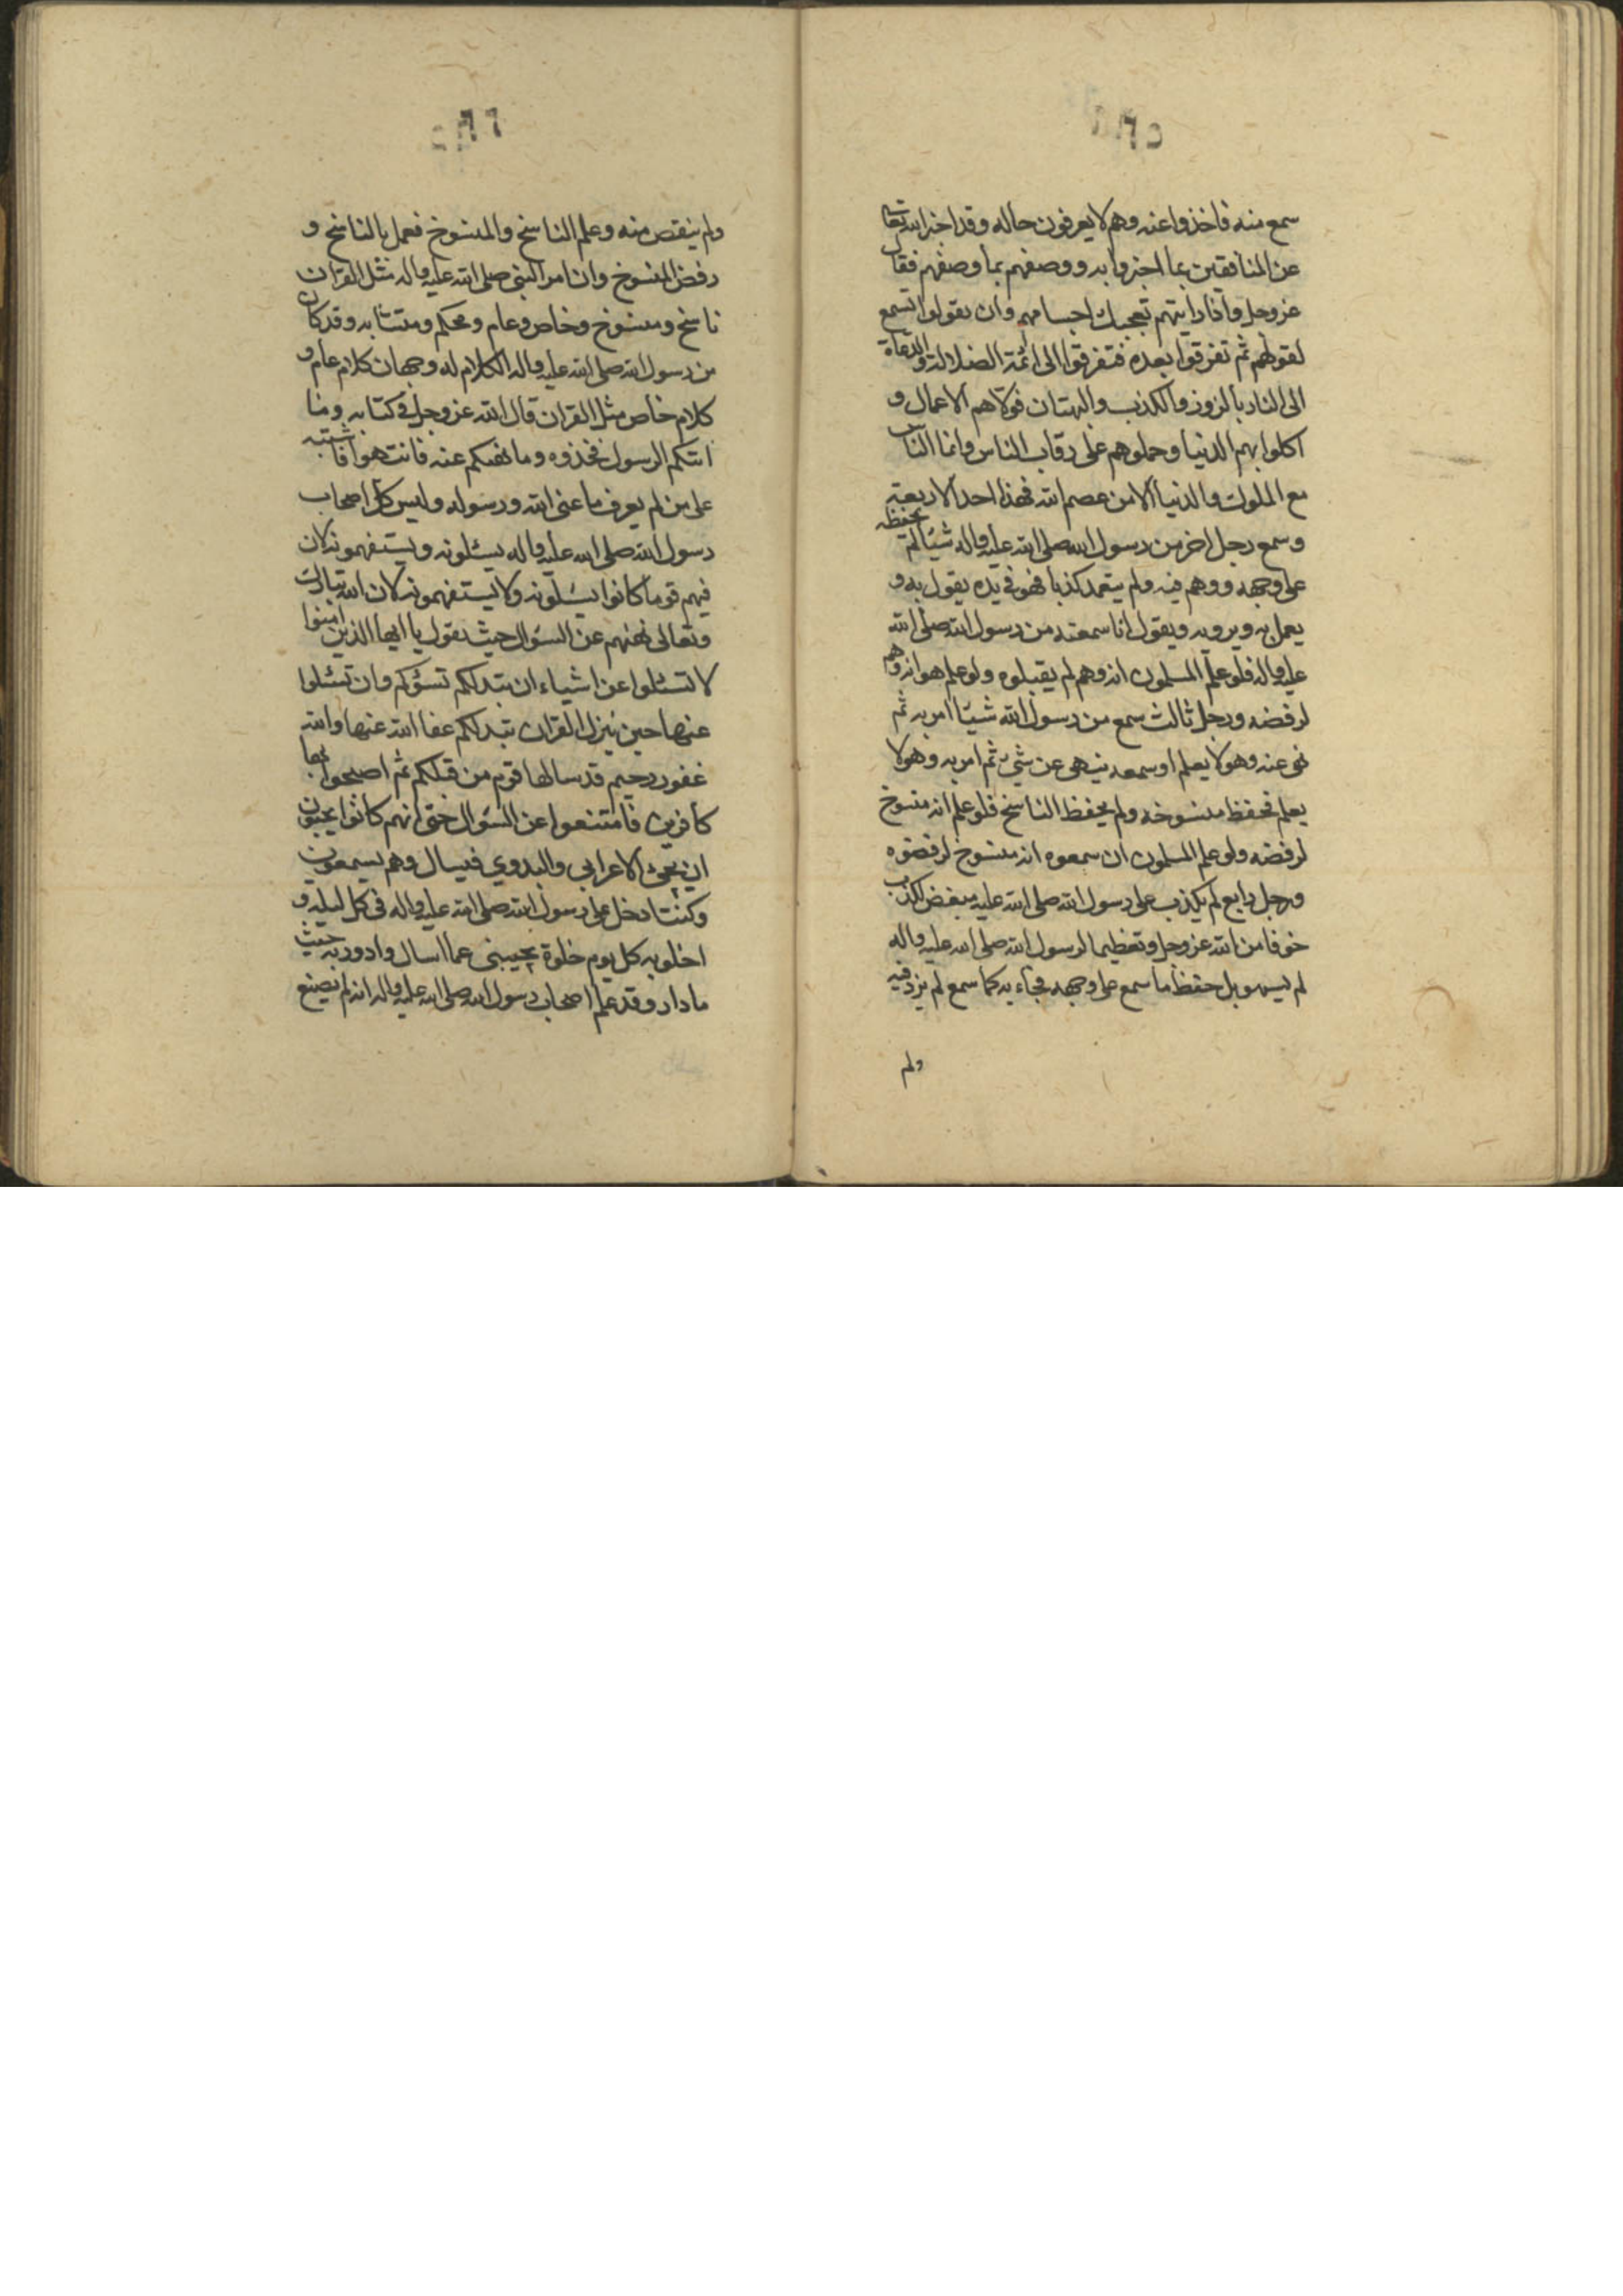 سمع منه فاخذوا عنه وهم لا يعرفون حاله وقد اخبر الله تعالى
عن المنافقين بما اخبر وابه ووصفهم بما وصفهم فقال
عز وجل واذا رايتهم تعجبك اجسامهم وان يقولوا تسمع
لقولهم ثم تفرقوا بعده فتفرقوا الى ائمة الضلالة والدعاة
الى النار بالزور والكذب والبهتان فولاهم الاعمال و
اكلوا بهم الدنيا وحملوهم على رقاب الناس وانما الناس
مع الملوك والدنيا الا من عصم الله فهذا احد الاربعة
وسمع رجل اخر من رسول الله صلى الله عليه واله شيئا لم يحفظه
على وجهه ووهم فيه ولم يتعمد كذبا فهو في يده يقول به و
يعمل به ويرويه ويقول انا سمعته من رسول الله صلى الله
عليه واله فلو علم المسلمون انه وهم لم يقبلوه ولو علم هو انه وهم
لرفضه ورجل ثالث سمع من رسول الله شيئا امر به ثم
نهى عنه وهو لا يعلم او سمعه ينهى عن شيء ثم امر به وهو لا
يعلم فحفظ منسوخه ولم يحفظ الناسخ فلو علم انه منسوخ
لرفضه ولو علم المسلمون ان سمعوه انه منسوخ لرفضوه
ورجل رابع لم يكذب على رسول الله صلى الله عليه مبغض للكذب
خوفا من الله عز وجل وتعظيما لرسول الله صلى الله عليه واله
لم يسهو بل حفظ ما سمع على وجهه فجاء به كما سمع لم يزد فيه
ولم
ولم ينقص منه وعلم الناسخ والمنسوخ فعمل بالناسخ و
رفض المنسوخ وان امر النبي صلى الله عليه واله مثل القران
ناسخ ومنسوخ وخاص وعام ومحكم ومتشابه وقد كان
من رسول الله صلى الله عليه واله الكلام له وجهان كلام عام و
كلام خاص مثل القران قال الله عز وجل في كتابه وما
اتيكم الرسول فخذوه وما نهيكم عنه فانتهوا فاشتبه
على من لم يعرف ما عنى الله ورسوله وليس كل اصحاب
رسول الله صلى الله عليه واله يسئلونه ويستفهمونه لان
فيهم قوما كانوا يسئلونه ولا يستفهمونه لان الله تبارك
وتعالى نهيهم عن السؤال حيث يقول يا ايها الذين امنوا
لا تسئلوا عن اشياء ان تبد لكم تسؤكم وان تسئلوا
عنها حين ينزل القران تبد لكم عفا الله عنها والله
غفور رحيم قد سالها قوم من قبلكم ثم اصبحوا بها
كافرين فامتنعوا عن السؤال حتى انهم كانوا يحبون
ان يجئ الاعرابي والبدوي فيسال وهم يسمعون
وكنت ادخل على رسول الله صلى الله عليه واله في كل ليلة و
اخلو به كل يوم خلوة يجيبني عما اسال وادور به حيث
ما دار وقد علم اصحاب رسول الله صلى الله عليه واله انه لم يصنع